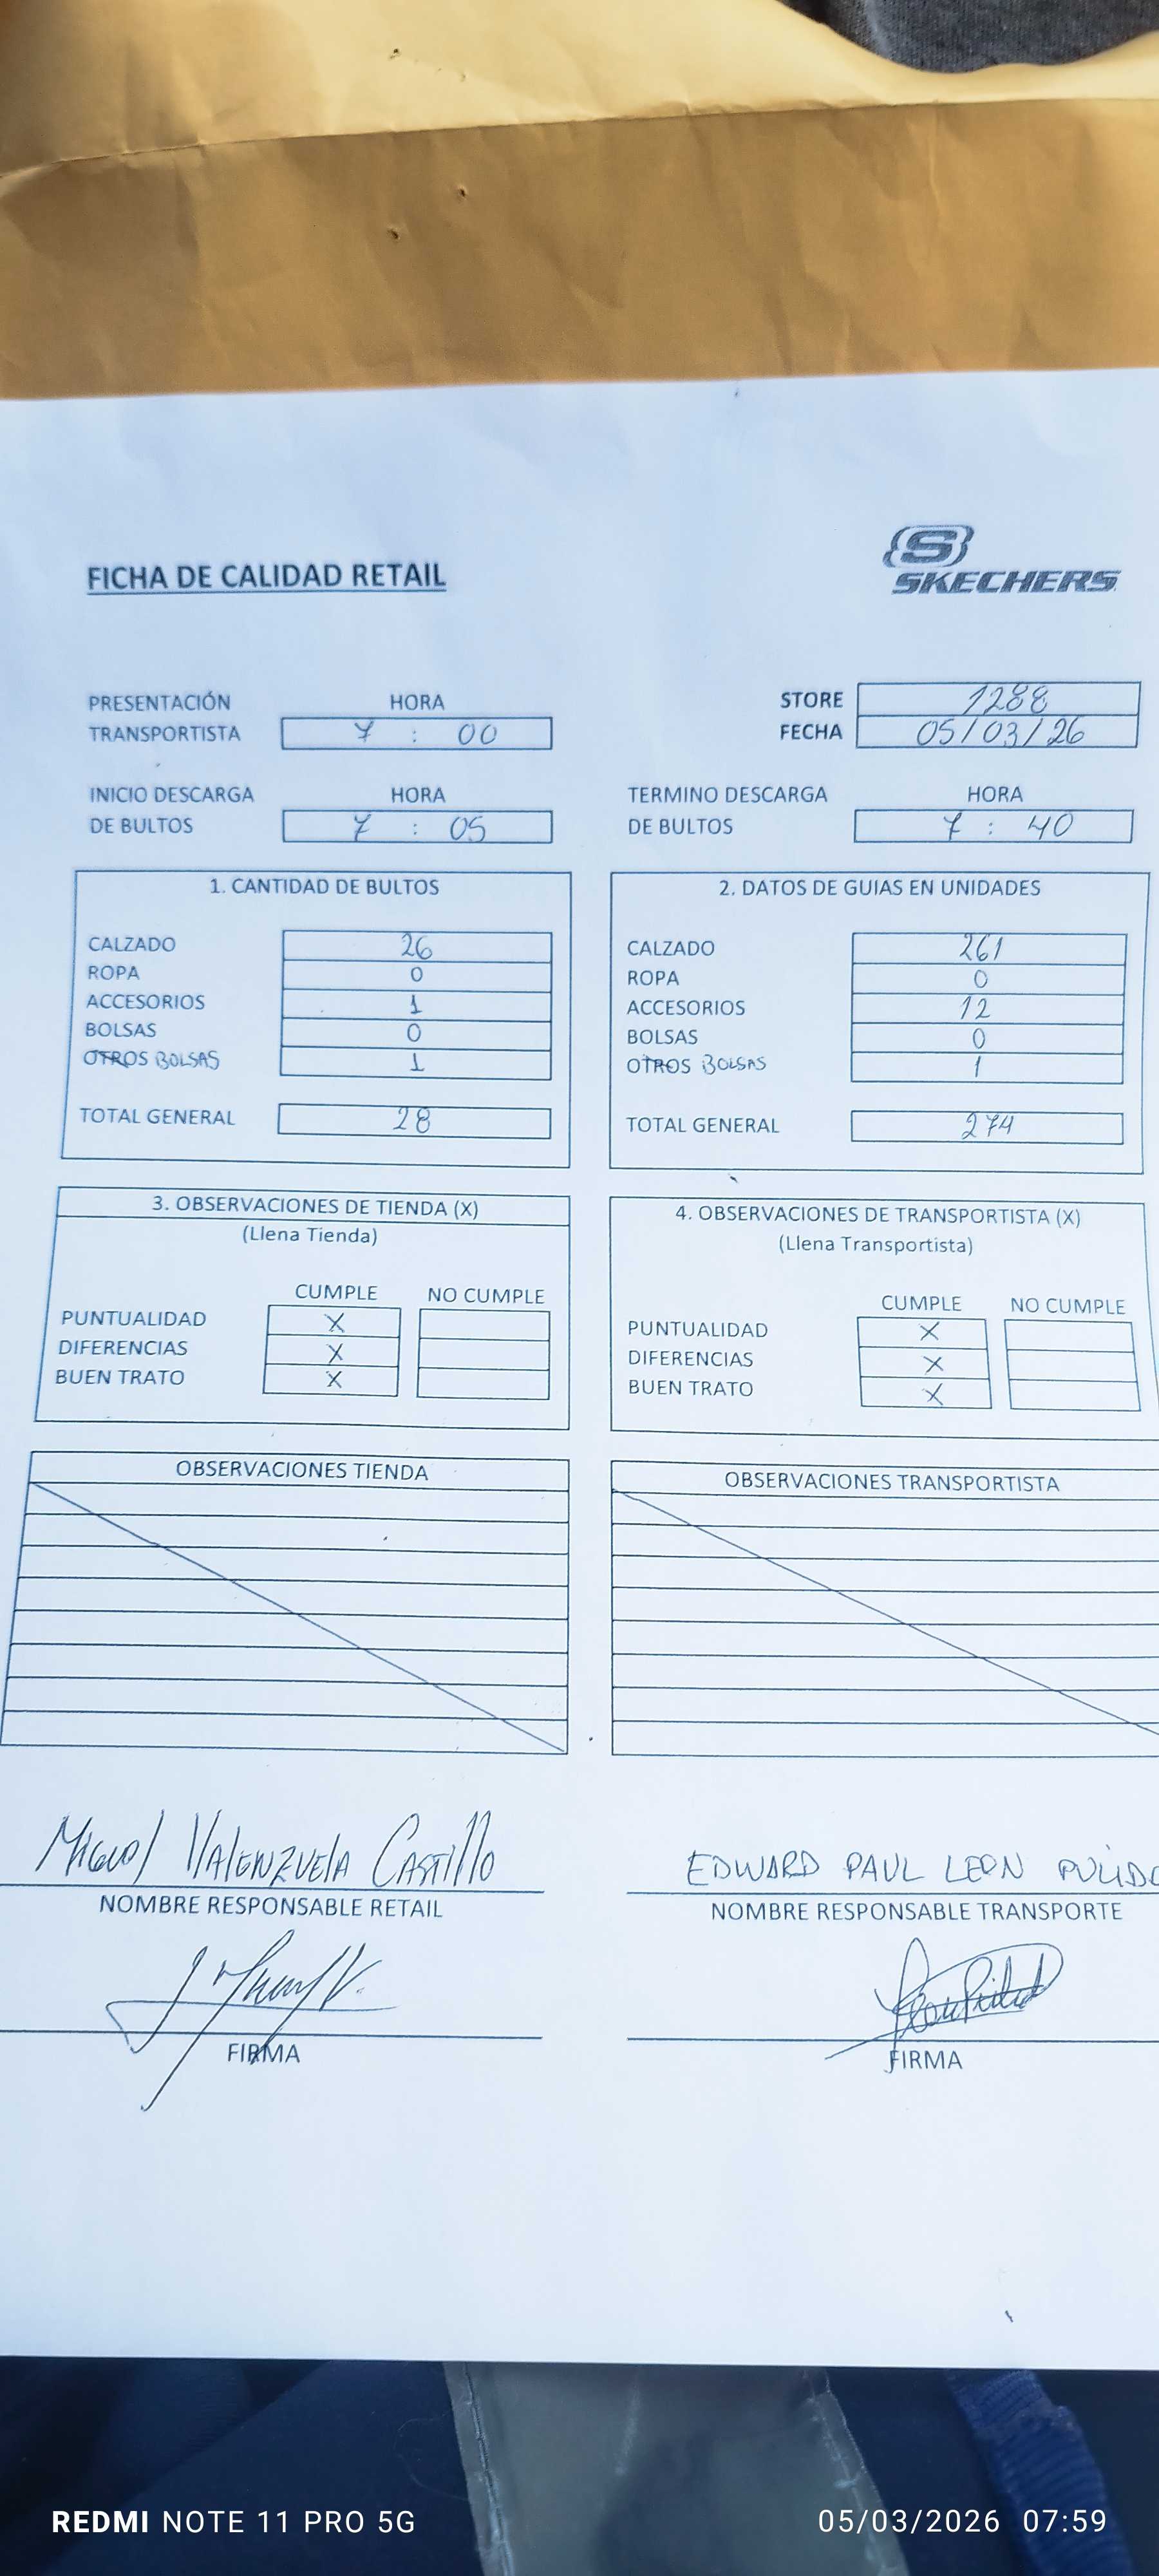 FICHA DE CALIDAD RETAIL
S
SKECHERS
PRESENTACIÓN HORA
TRANSPORTISTA 7 : 00
STORE 1288
FECHA 05/03/26
INICIO DESCARGA HORA
DE BULTOS 7 : 05
TERMINO DESCARGA HORA
DE BULTOS 7 : 40
1. CANTIDAD DE BULTOS
CALZADO 26
ROPA 0
ACCESORIOS 1
BOLSAS 0
OTROS BOLSAS 1
TOTAL GENERAL 28
2. DATOS DE GUIAS EN UNIDADES
CALZADO 261
ROPA 0
ACCESORIOS 12
BOLSAS 0
OTROS BOLSAS 1
TOTAL GENERAL 274
3. OBSERVACIONES DE TIENDA (X)
(Llena Tienda)
CUMPLE NO CUMPLE
PUNTUALIDAD X
DIFERENCIAS X
BUEN TRATO X
4. OBSERVACIONES DE TRANSPORTISTA (X)
(Llena Transportista)
CUMPLE NO CUMPLE
PUNTUALIDAD X
DIFERENCIAS X
BUEN TRATO X
OBSERVACIONES TIENDA
OBSERVACIONES TRANSPORTISTA
Miguel Valenzuela Castillo
NOMBRE RESPONSABLE RETAIL
FIRMA
EDWARD PAUL LEON PULIDO
NOMBRE RESPONSABLE TRANSPORTE
FIRMA
REDMI NOTE 11 PRO 5G
05/03/2026 07:59